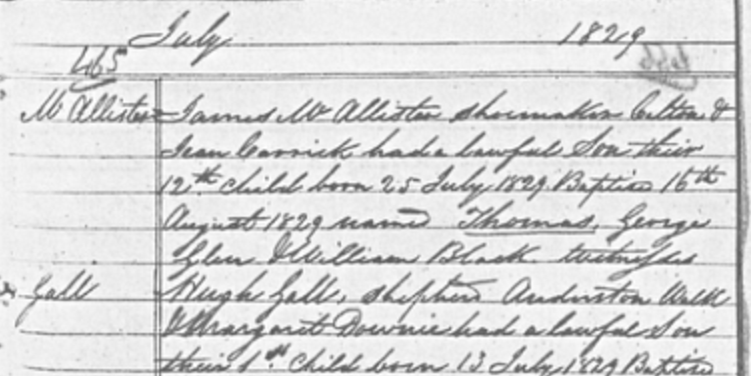 July 1829
465
McAllister James McAllister shoemaker Calton &
Jean Carrick had a lawful Son their
12th child born 25 July 1829 Baptised 16th
August 1829 named Thomas. George
Glen & William Black witnesses
Gall Hugh Gall, shepherd Anderston Walk
& Margaret Downie had a lawful Son
their 1st child born 13 July 1829 Baptised